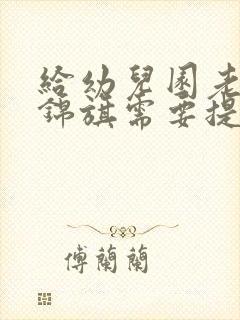 給幼兒園老
錦旗需要提
傅蘭蘭